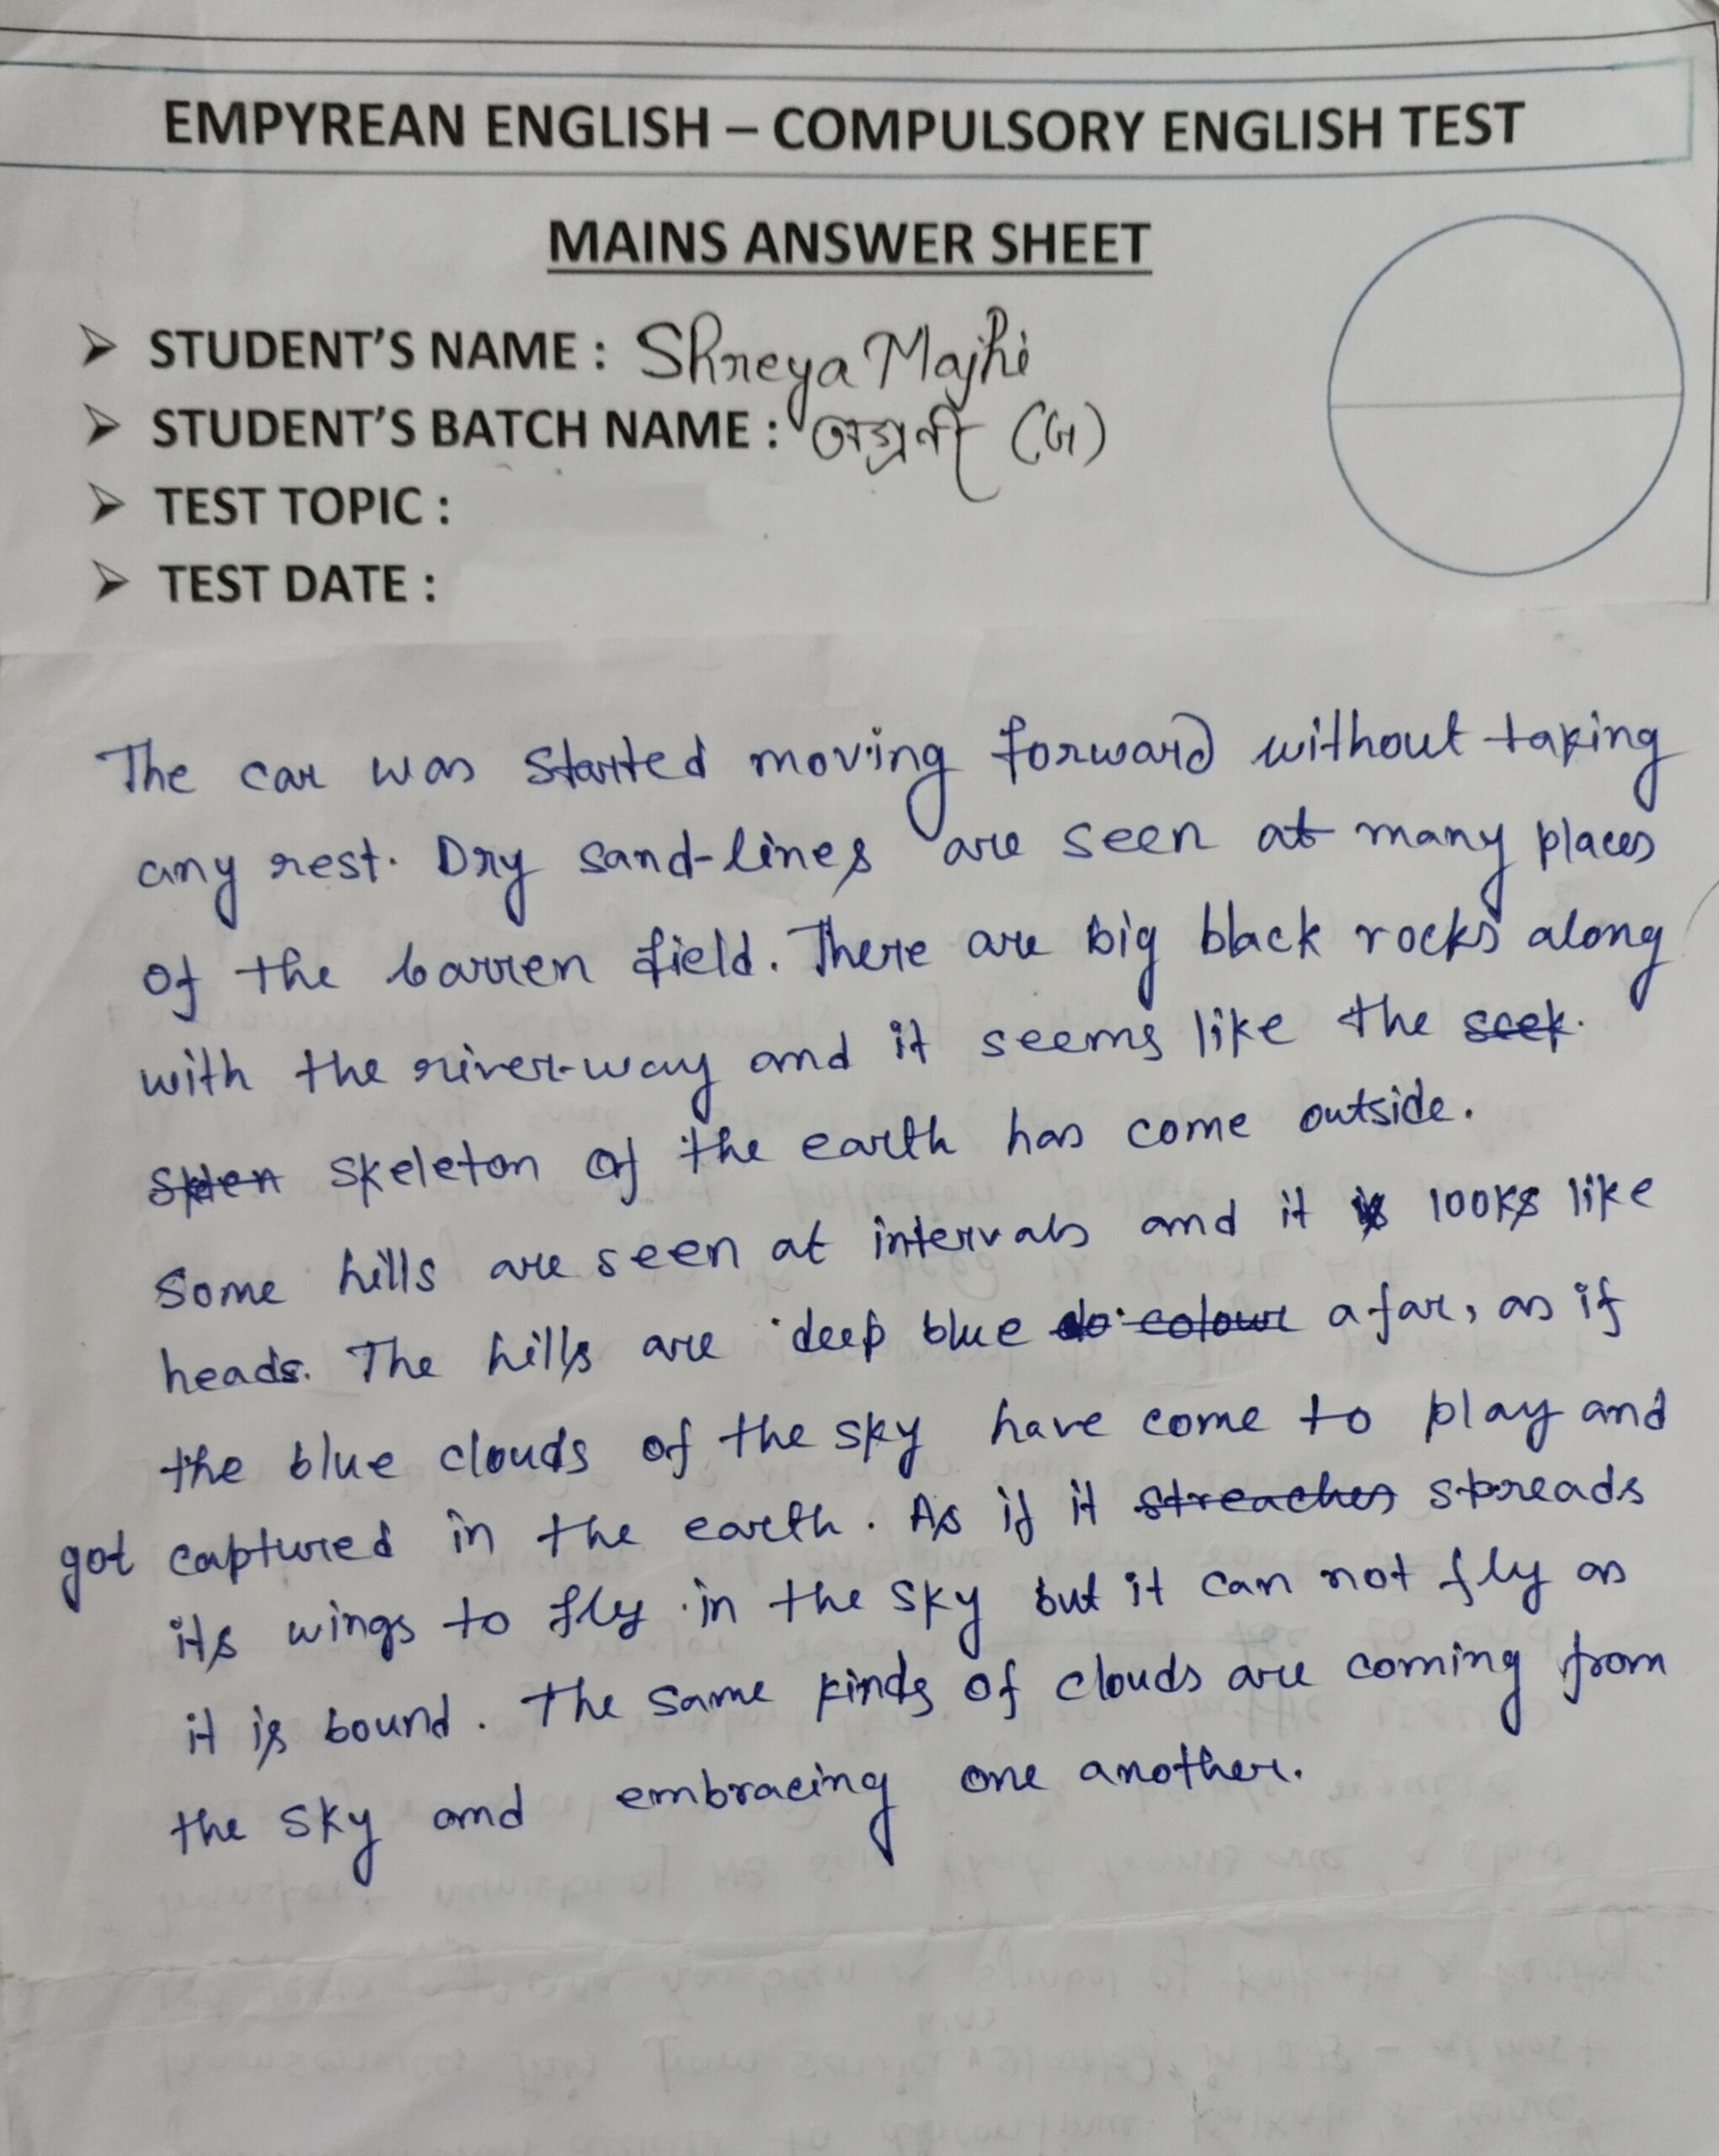 EMPYREAN ENGLISH – COMPULSORY ENGLISH TEST
MAINS ANSWER SHEET
➢ STUDENT'S NAME : Shreya Majhi
➢ STUDENT'S BATCH NAME : অগ্রনী (G)
➢ TEST TOPIC :
➢ TEST DATE :
The car was started moving forward without taking
any rest. Dry sand-lines are seen at many places
of the barren field. There are big black rocks along
with the river-way and it seems like the
skeleton of the earth has come outside.
Some hills are seen at intervals and it looks like
heads. The hills are deep blue afar, as if
the blue clouds of the sky have come to play and
got captured in the earth. As if it streaches spreads
its wings to fly in the sky but it can not fly as
it is bound. The same kinds of clouds are coming from
the sky and embracing one another.